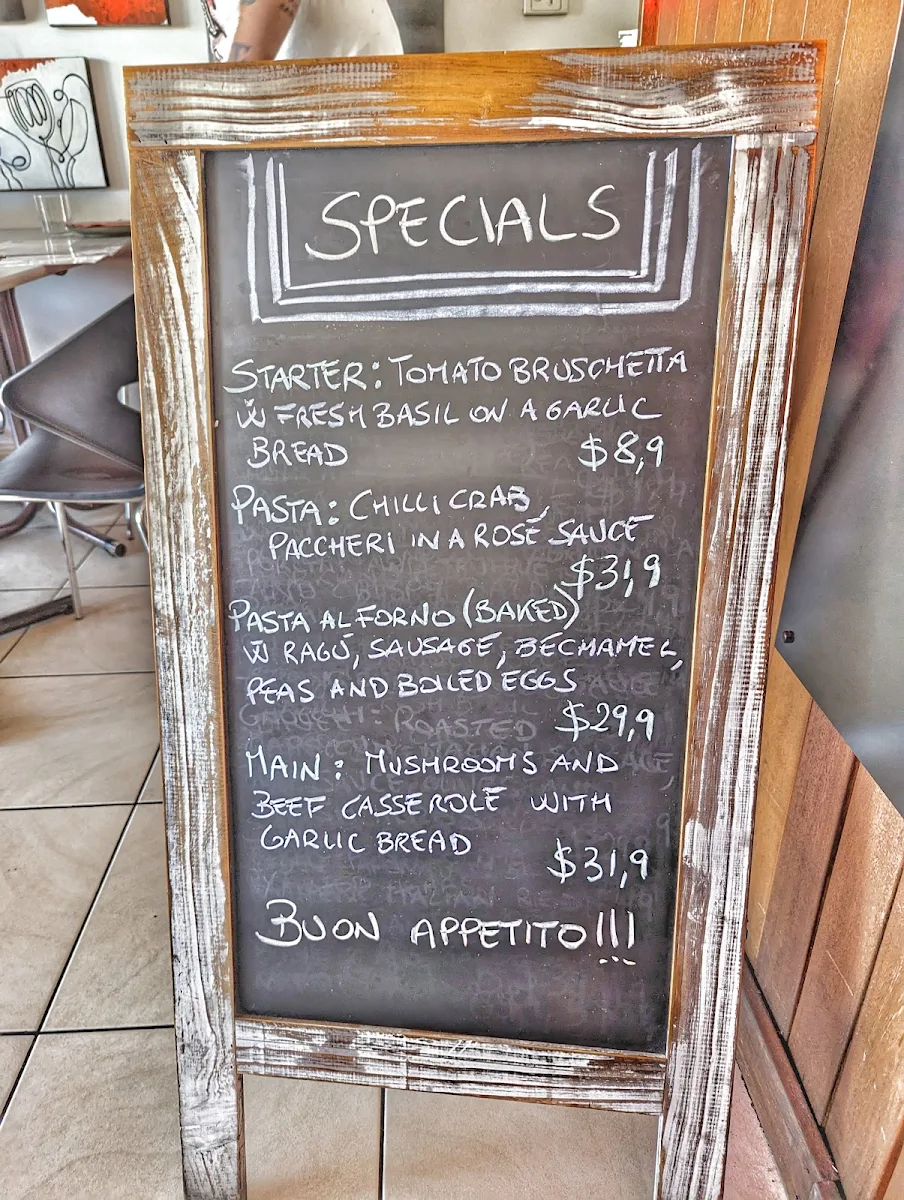 SPECIALS
STARTER: TOMATO BRUSCHETTA
W FRESH BASIL ON A GARLIC
BREAD $8,9
PASTA: CHILLI CRAB,
PACCHERI IN A ROSÉ SAUCE
$31,9
PASTA AL FORNO (BAKED)
W RAGÚ, SAUSAGE, BECHAMEL,
PEAS AND BOILED EGGS
ROASTED
$29,9
MAIN: MUSHROOMS AND
BEEF CASSEROLE WITH
GARLIC BREAD
$31,9
BUON APPETITO!!!